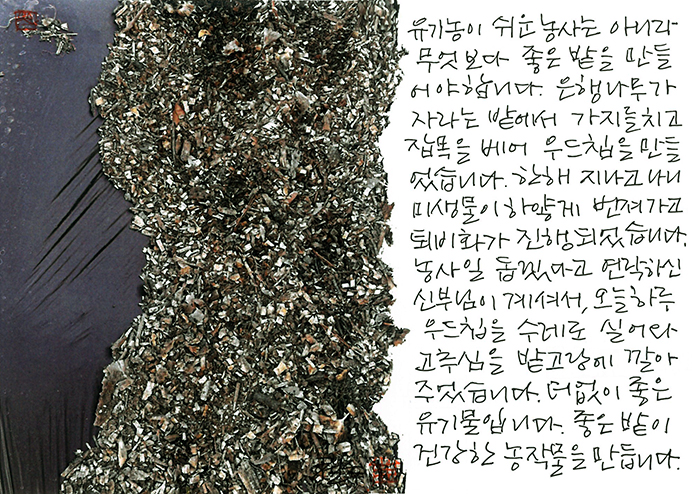 유기농이 쉬운 농사는 아니라
무엇보다 좋은 밭을 만들
어야 합니다. 은행나무가
자라는 밭에서 가지를 치고
잡목을 베어 우드칩을 만들
었습니다. 한해 지나고 나니
미생물이 하얗게 번져가고
퇴비화가 진행되었습니다.
농사일 돕겠다고 연락하신
신부님이 계셔서, 오늘하루
우드칩을 수레로 실어와
고추심을 밭고랑에 깔아
주었습니다. 더없이 좋은
유기물입니다. 좋은 밭이
건강한 농작물을 만듭니다.